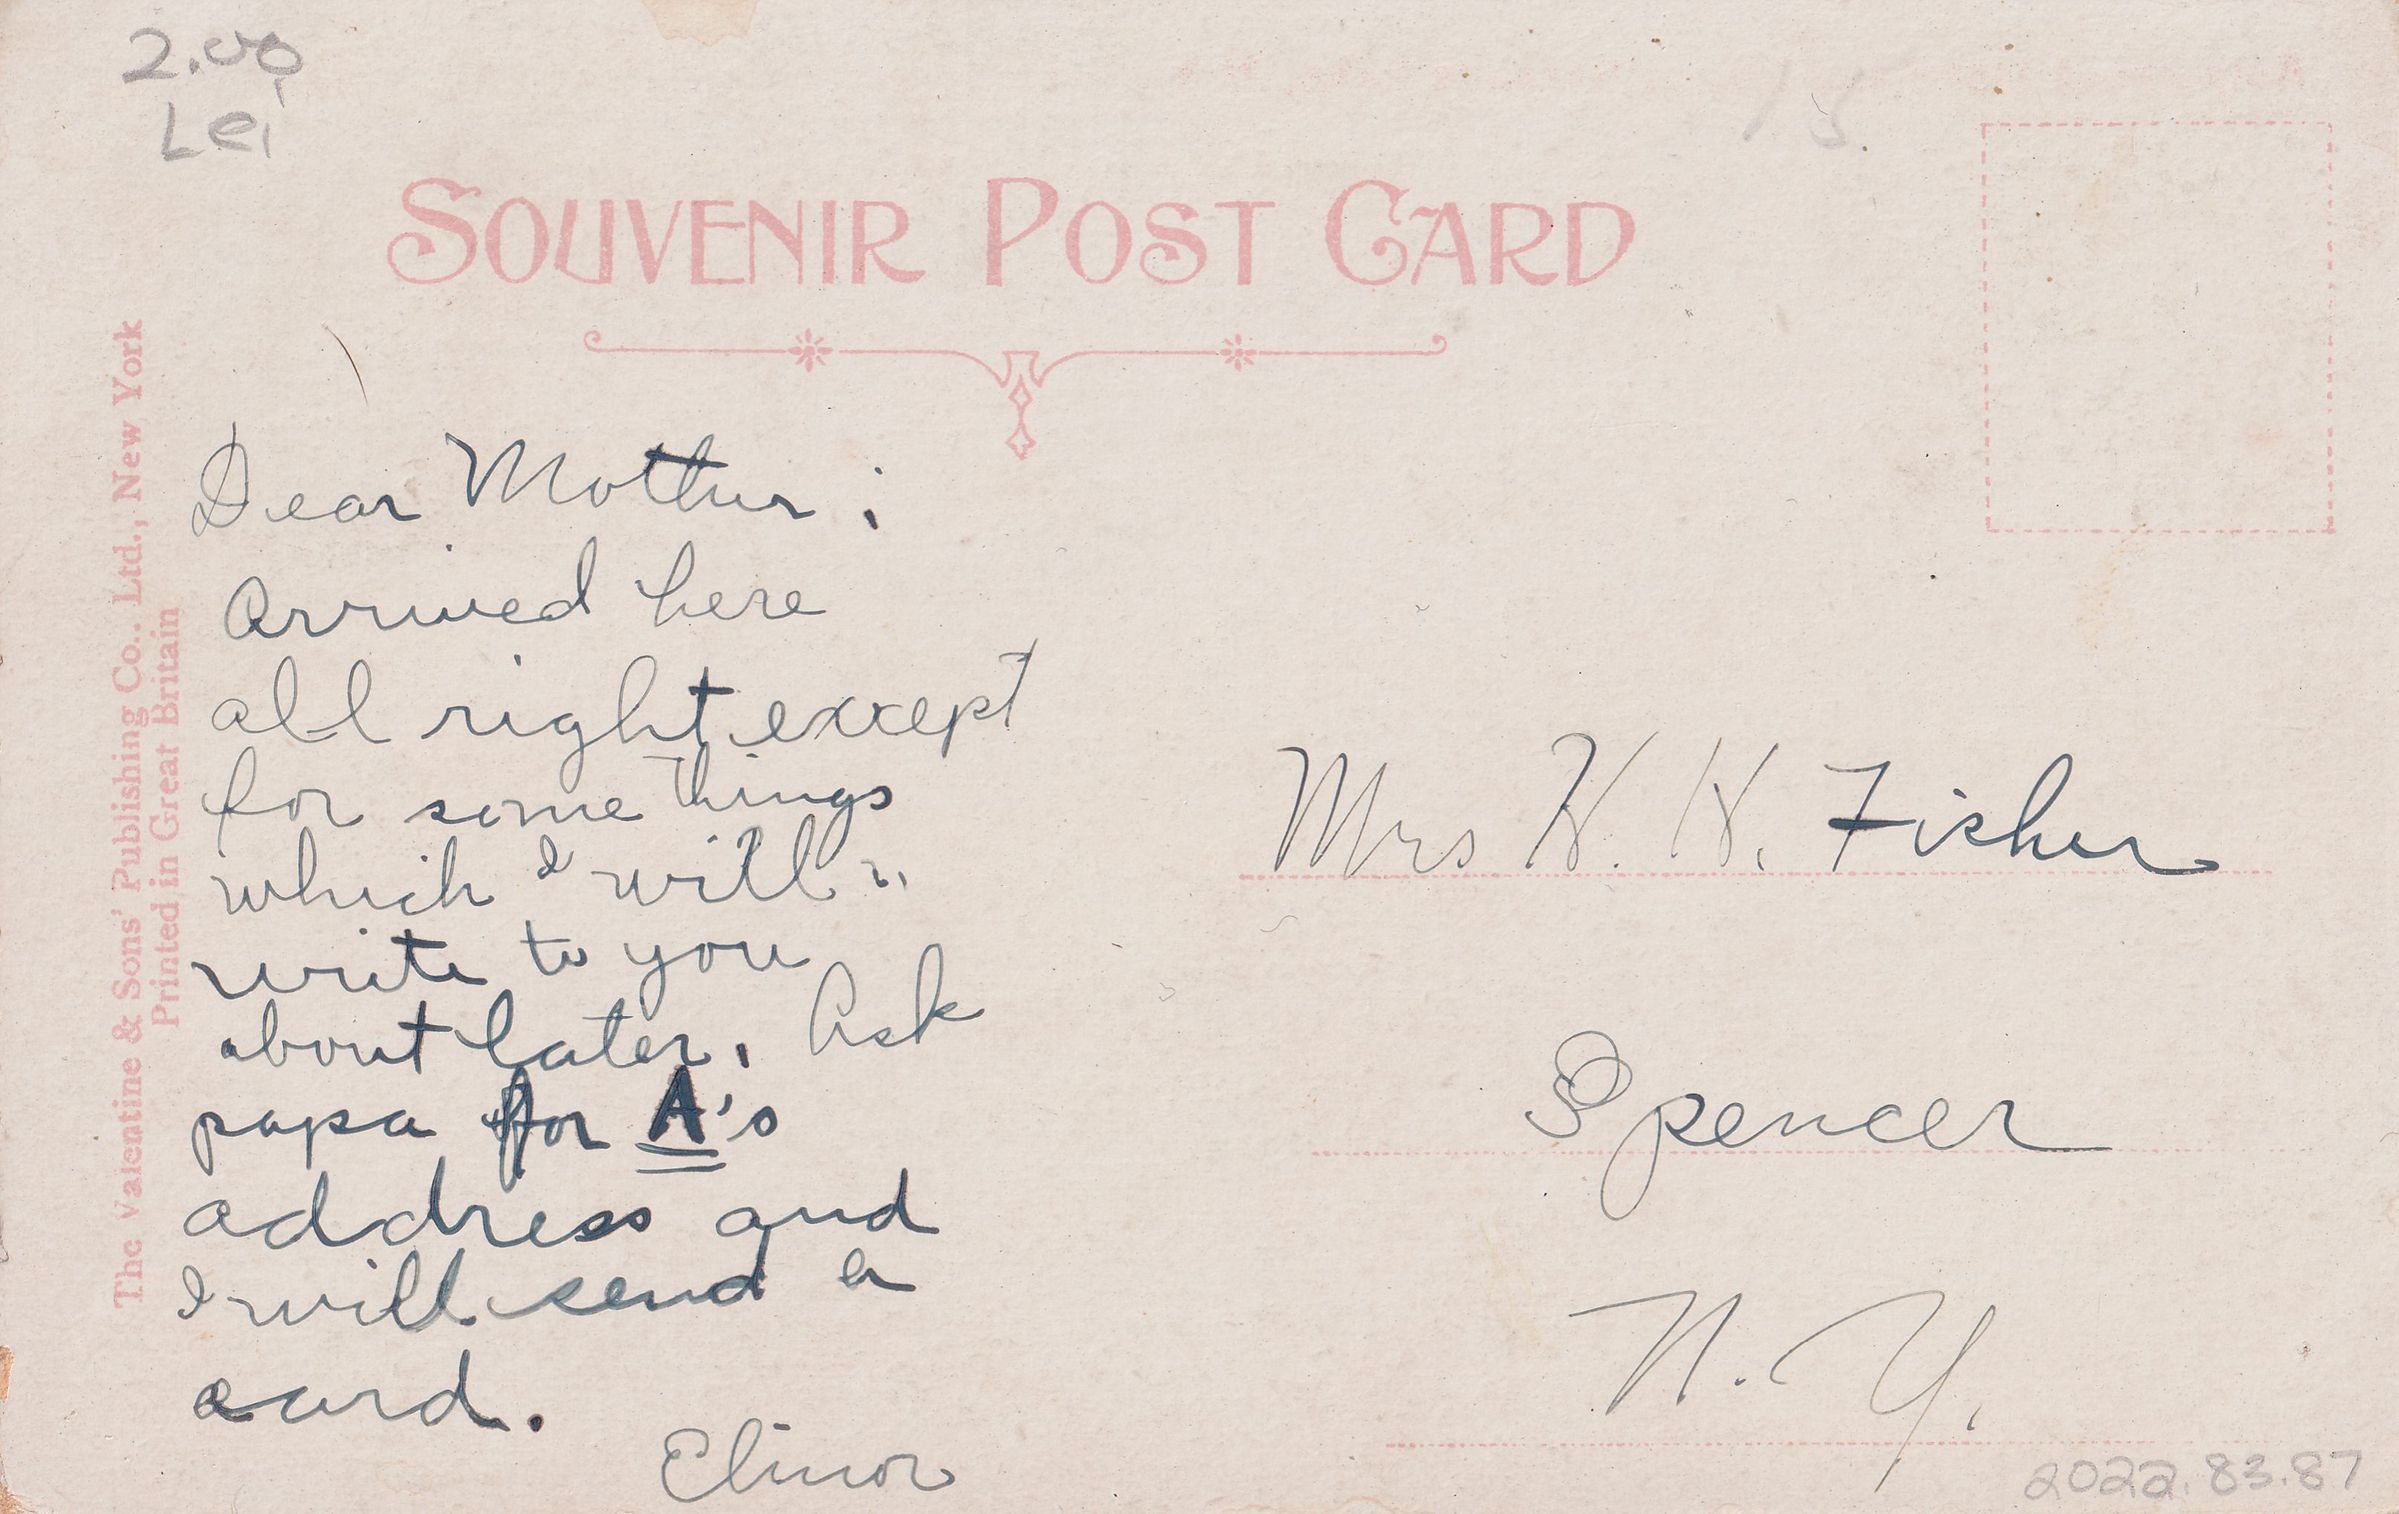 2.00
Lei
SOUVENIR POST CARD
The Valentine & Sons' Publishing Co., Ltd., New York
Printed in Great Britain
Dear Mother;
Arrived here
all right except
for some things
which I will
write to you
about later. Ask
papa for A's
address and
I will send a
card.
Elinor
Mrs H. H. Fisher
Spencer
N. Y.
2022.83.87